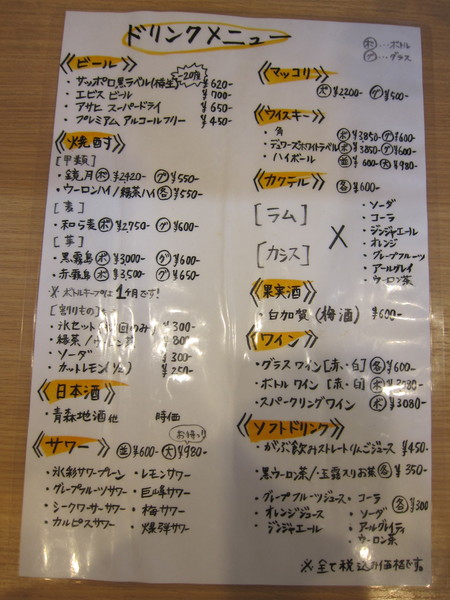 ドリンクメニュー
ボ…ボトル
グ…グラス
《ビール》
・サッポロ黒ラベル(樽生) ¥620-
・エビス ビール ¥700-
・アサヒ スーパードライ ¥650-
・プレミアム アルコールフリー ¥450-
《焼酎》
[甲類]
・鏡月 ボ ¥2420- グ ¥550-
・ウーロンハイ/緑茶ハイ 各 ¥550-
[麦]
・和ら麦 ボ ¥2,750- グ ¥600-
[芋]
・黒霧島 ボ ¥3,000- グ ¥600-
・赤霧島 ボ ¥3,500- グ ¥650-
※ボトルキープは1ヶ月です!
[割りもの]
・氷セット ¥300-
・緑茶/
・ソーダ ¥300-
・カットレモン ¥250-
《日本酒》
・青森地酒 他 時価
お得っ
《サワー》 並 ¥600- 大 ¥980-
・氷彩サワープレーン ・レモンサワー
・グレープフルーツサワー ・巨峰サワー
・シークワーサーサワー ・梅サワー
・カルピスサワー ・爆弾サワー
《マッコリ》
ボ ¥2200- グ ¥500-
《ウイスキー》
・角 ボ ¥3850- グ ¥600-
・デュワーズホワイトラベル ボ ¥3850- グ ¥600-
・ハイボール 並 ¥600- 大 ¥980-
《カクテル》 各 ¥600-
[ラム]
[カシス]
×
・ソーダ
・コーラ
・ジンジャエール
・オレンジ
・グレープフルーツ
・アールグレイ
・ウーロン茶
《果実酒》
・白加賀(梅酒) ¥600-
《ワイン》
・グラスワイン[赤・白] 各 ¥600-
・ボトルワイン[赤・白] ボ ¥3080-
・スパークリングワイン ボ ¥3080-
《ソフトドリンク》
・がぶ飲みストレートりんごジュース ¥450-
・黒ウーロン茶/・玉露入りお茶 各 ¥350-
・グレープフルーツジュース ・コーラ 各 ¥300
・オレンジジュース ・ソーダ
・ジンジャエール ・アールグレイティ
・ウーロン茶
※全て税込み価格です。